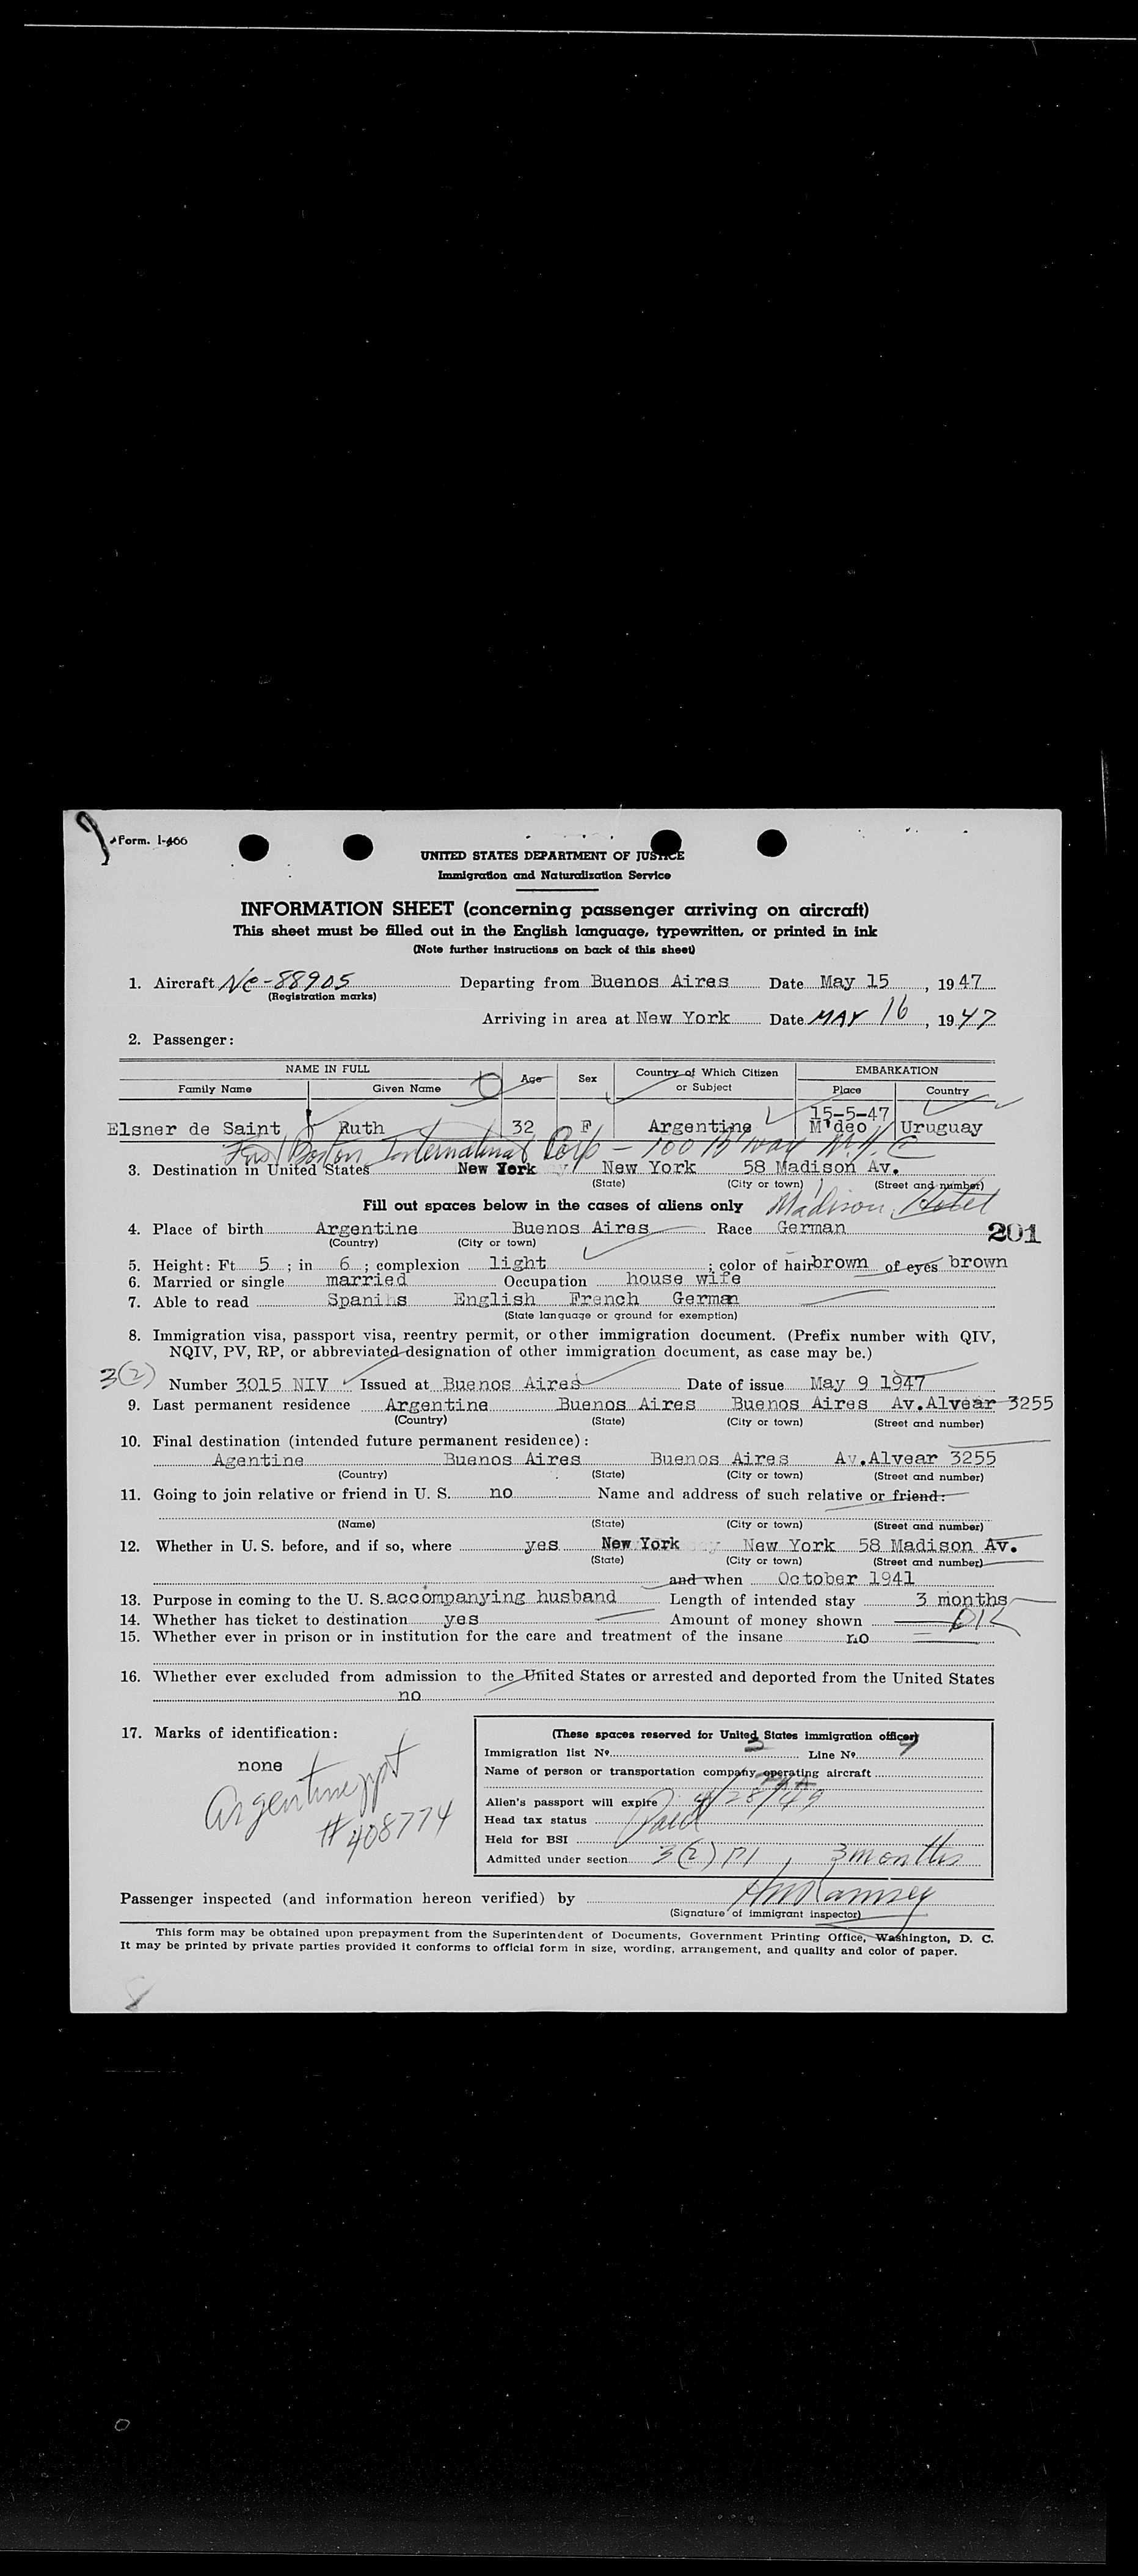 Form. I-466
UNITED STATES DEPARTMENT OF JUSTICE
Immigration and Naturalization Service
INFORMATION SHEET (concerning passenger arriving on aircraft)
This sheet must be filled out in the English language, typewritten, or printed in ink
(Note further instructions on back of this sheet)
1. Aircraft NC-88905 Departing from Buenos Aires Date May 15, 1947
(Registration marks)
Arriving in area at New York Date MAY 16, 1947
2. Passenger:
NAME IN FULL Age Sex Country of Which Citizen or Subject EMBARKATION
Family Name Given Name Place Country
15-5-47
Elsner de Saint Ruth 32 F Argentine M'deo Uruguay
First Boston International Corp - 100 B'way N.Y.C
3. Destination in United States New York New York 58 Madison Av.
(State) (City or town) (Street and number)
Fill out spaces below in the cases of aliens only Madison Hotel
4. Place of birth Argentine Buenos Aires Race German 201
(Country) (City or town)
5. Height: Ft 5 ; in 6 ; complexion light ; color of hair brown of eyes brown
6. Married or single married Occupation house wife
7. Able to read Spanihs English French German
(State language or ground for exemption)
8. Immigration visa, passport visa, reentry permit, or other immigration document. (Prefix number with QIV,
NQIV, PV, RP, or abbreviated designation of other immigration document, as case may be.)
3(2) Number 3015 NIV Issued at Buenos Aires Date of issue May 9 1947
9. Last permanent residence Argentine Buenos Aires Buenos Aires Av.Alvear 3255
(Country) (State) (City or town) (Street and number)
10. Final destination (intended future permanent residence):
Agentine Buenos Aires Buenos Aires Av.Alvear 3255
(Country) (State) (City or town) (Street and number)
11. Going to join relative or friend in U. S. no Name and address of such relative or friend:
(Name) (State) (City or town) (Street and number)
12. Whether in U. S. before, and if so, where yes New York New York 58 Madison Av.
(State) (City or town) (Street and number)
and when October 1941
13. Purpose in coming to the U. S. accompanying husband Length of intended stay 3 months
14. Whether has ticket to destination yes Amount of money shown OK
15. Whether ever in prison or in institution for the care and treatment of the insane no
16. Whether ever excluded from admission to the United States or arrested and deported from the United States
no
17. Marks of identification:
none
Argentine ppt
# 408774
(These spaces reserved for United States immigration officer)
Immigration list No. 3 Line No. 9
Name of person or transportation company operating aircraft
Alien's passport will expire 4/28/49
Head tax status Paid
Held for BSI
Admitted under section 3(2) P1, 3 months
Passenger inspected (and information hereon verified) by HM Ramsey
(Signature of immigrant inspector)
This form may be obtained upon prepayment from the Superintendent of Documents, Government Printing Office, Washington, D. C.
It may be printed by private parties provided it conforms to official form in size, wording, arrangement, and quality and color of paper.
8